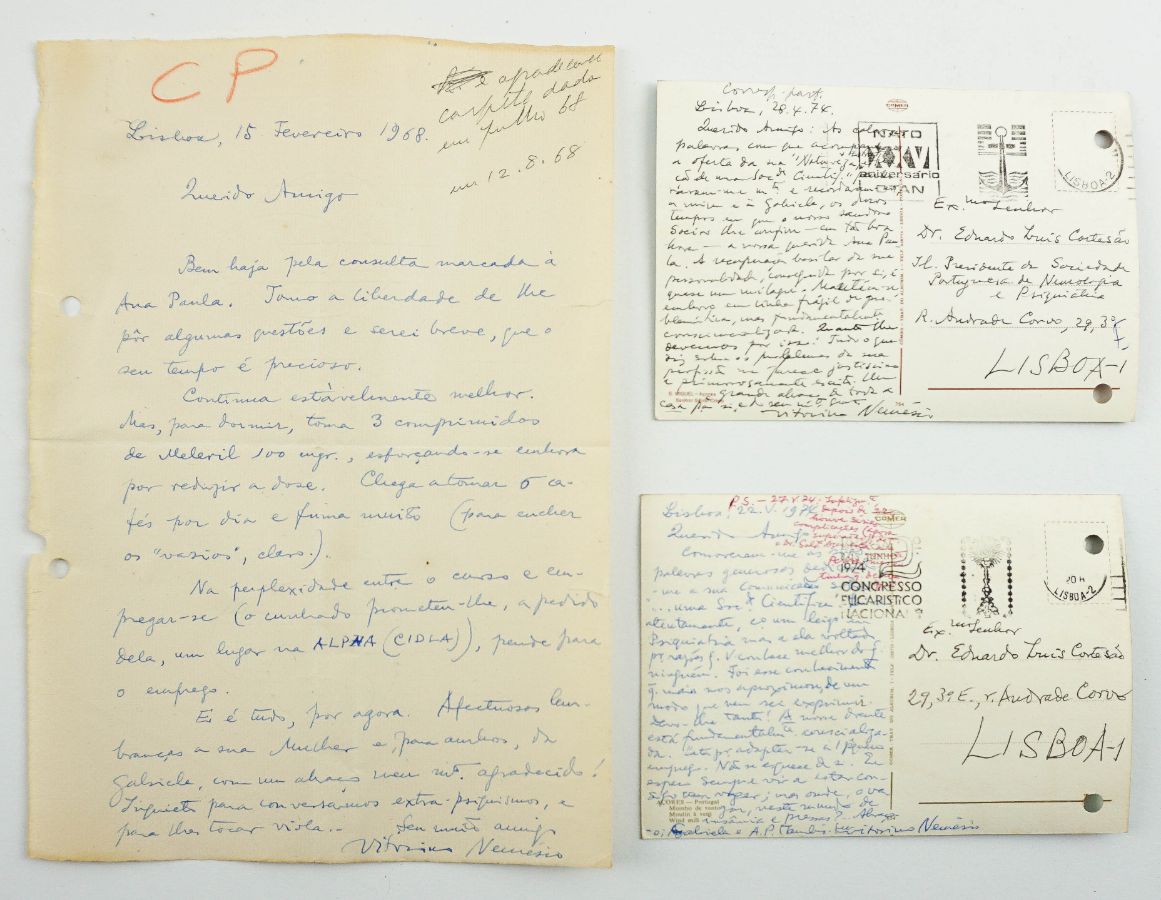 CP
é agradecer
carpete dada
em Julho 68
em 12.8.68
Lisboa, 15 Fevereiro 1968.
Querido Amigo
Bem haja pela consulta marcada à
Ana Paula. Tomo a liberdade de lhe
pôr algumas questões e serei breve, que o
seu tempo é precioso.
Continua estàvelmente melhor.
Mas, para dormir, toma 3 comprimidos
de Meleril 100 mgr., esforçando-se embora
por reduzir a dose. Chega a tomar 6 ca-
fés por dia e fuma muito (para encher
os "vasios", claro.).
Na perplexidade entre o curso e em-
pregar-se (o cunhado prometeu-lhe, a pedido
dela, um lugar na ALPHA (CIDLA)), pende para
o emprego.
Eis é tudo, por agora. Afectuosas lem-
branças a sua Mulher e, para ambos, da
Gabriela, com um abraço meu mt. agradecido!
para conversarmos extra-psiquismos, e
para lhes tocar viola.. Seu muito amigo
Vitorino Nemésio
Corresp. part.
Lisboa, 28.4.74.
Querido Amigo: As
palavras com que
a oferta da na "Natureza
ção de uma Soc. Cientif."
mt. e
a mim e à Gabriela, os
tempos em que o nosso saudoso
Seeiro lhe confiou — em tão boa
hora — a nossa querida Ana Pau-
la. A recuperação basilar da sua
personalidade, conseguida por si, é
quase um milagre. Mantém-se
embora em linha frágil de pro-
blemática, mas fundamentalmente
consciencializada. Quanto lhe
devemos por isso! Tudo o que
diz sobre os problemas da sua
profissão me parece justíssimo
e primorosamente escrito. Um
grande abraço de toda a
casa para si, e do seu mto. grato
Vitorino Nemésio
COMER
NATO
XXV
aniversário
OTAN
LISBOA-2
Ex.mo Senhor
Dr. Eduardo Luis Cortesão
Il. Presidente da Sociedade
Portuguesa de Neurologia
e Psiquiatria
R. Andrade Corvo, 29, 3º E.
LISBOA-1
S. MIGUEL - Açores
784
Lisboa, 22.V.1974
P.S. - 27.V.74.
depois de
houve
complicações
Querido Amigo
Comoveram-me as
palavras generosas
me a sua comunicação
... uma Soc. Científica
atentamente, como um leigo em
Psiquiatria mas a ela voltado
por razões q. V. conhece melhor do q.
ninguém. Foi esse conhecimento
q. mais nos aproximou, de um
modo que nem sei exprimir.
Devo-lhe tanto! A nossa doente
está fundamentalmte. consciencializa-
da. Luta pr. adaptar-se a 1 pequeno
emprego. Não se esquece de si. Eu
espero sempre vir a estar con-
sigo com vagar; mas onde, o va-
gar, neste mundo de
distância e pressas? Abraço
Gabriela e A.P. também. Vitorino Nemésio
COMER
JUNHO
1974
CONGRESSO
EUCARISTICO
NACIONAL
20H
LISBOA-2
Ex.mo Senhor
Dr. Eduardo Luis Cortesão
29, 3º E., r. Andrade Corvo
LISBOA-1
AÇORES — Portugal
Moinho de vento
Moulin à vent
Wind mill